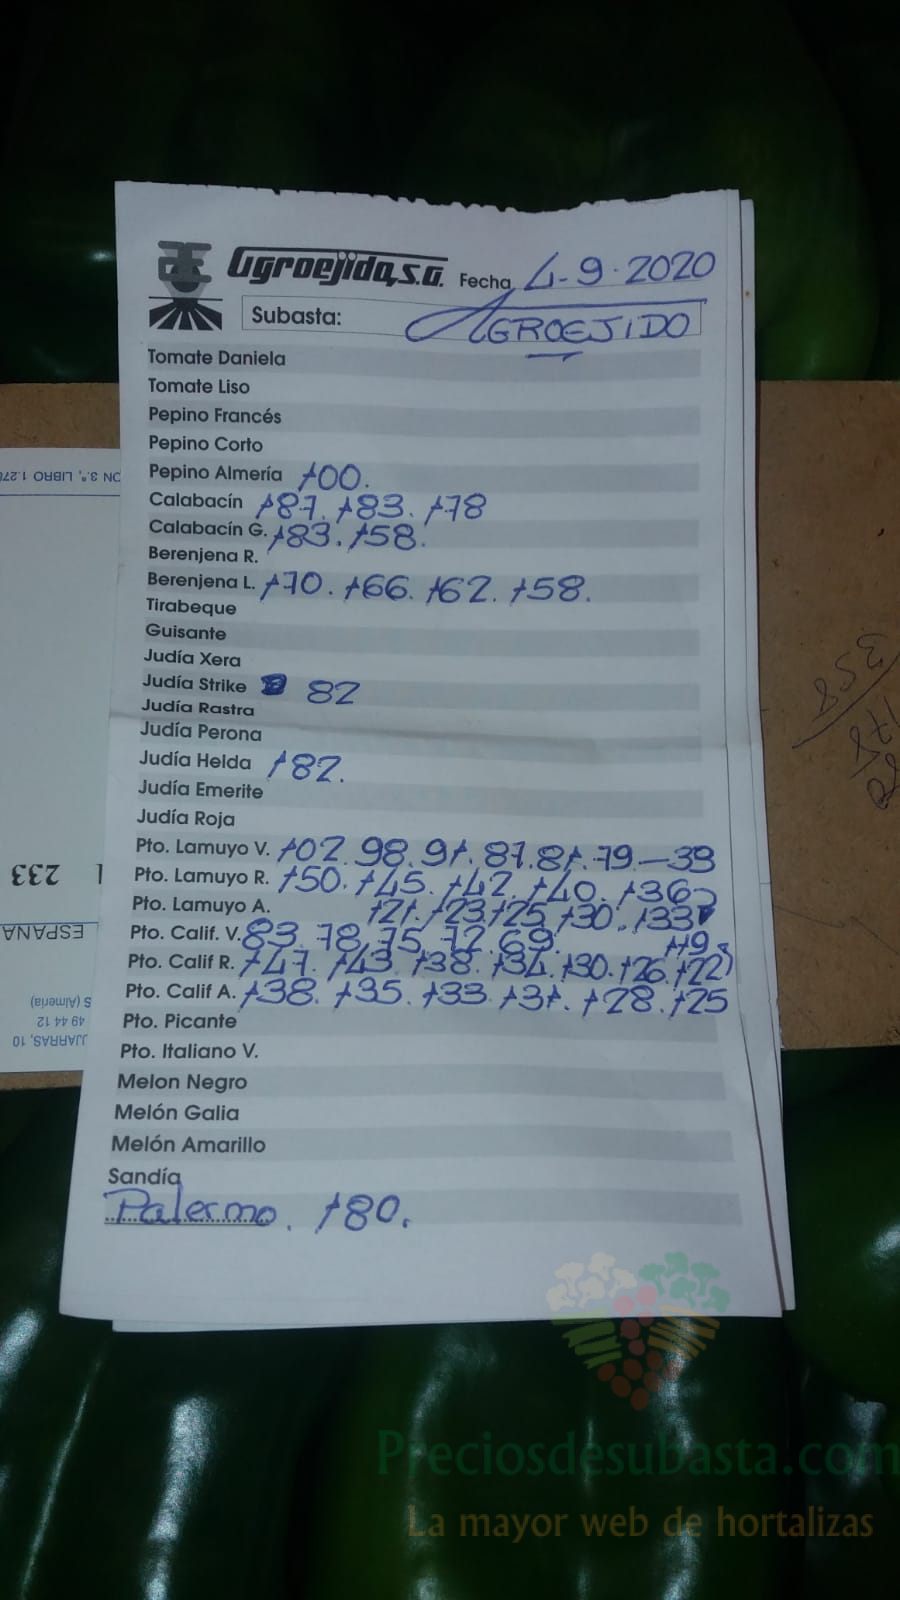 Agroejido, S.A. Fecha 4-9-2020
Subasta: AGROEJIDO
Tomate Daniela
Tomate Liso
Pepino Francés
Pepino Corto
Pepino Almería 100.
Calabacín 187. 183. 178
Calabacín G. 183. 158.
Berenjena R.
Berenjena L. 170. 166. 162. 158.
Tirabeque
Guisante
Judía Xera
Judía Strike 82
Judía Rastra
Judía Perona
Judía Helda 182.
Judía Emerite
Judía Roja
Pto. Lamuyo V. 102. 98. 91. 87. 81. 79-39
Pto. Lamuyo R. 150. 145. 142. 140. 136
Pto. Lamuyo A. 121. 123. 125. 130. 133
Pto. Calif. V. 83. 78. 75. 72. 69. 119
Pto. Calif R. 147. 143. 138. 134. 130. 126. 122
Pto. Calif A. 138. 135. 133. 131. 128. 125
Pto. Picante
Pto. Italiano V.
Melon Negro
Melón Galia
Melón Amarillo
Sandía
Palermo. 180.
ON 3.ª, LIBRO 1.278
233
ESPAÑA
S (Almería)
49 44 12
JARRAS, 10
358
Preciosdesubasta.com
La mayor web de hortalizas